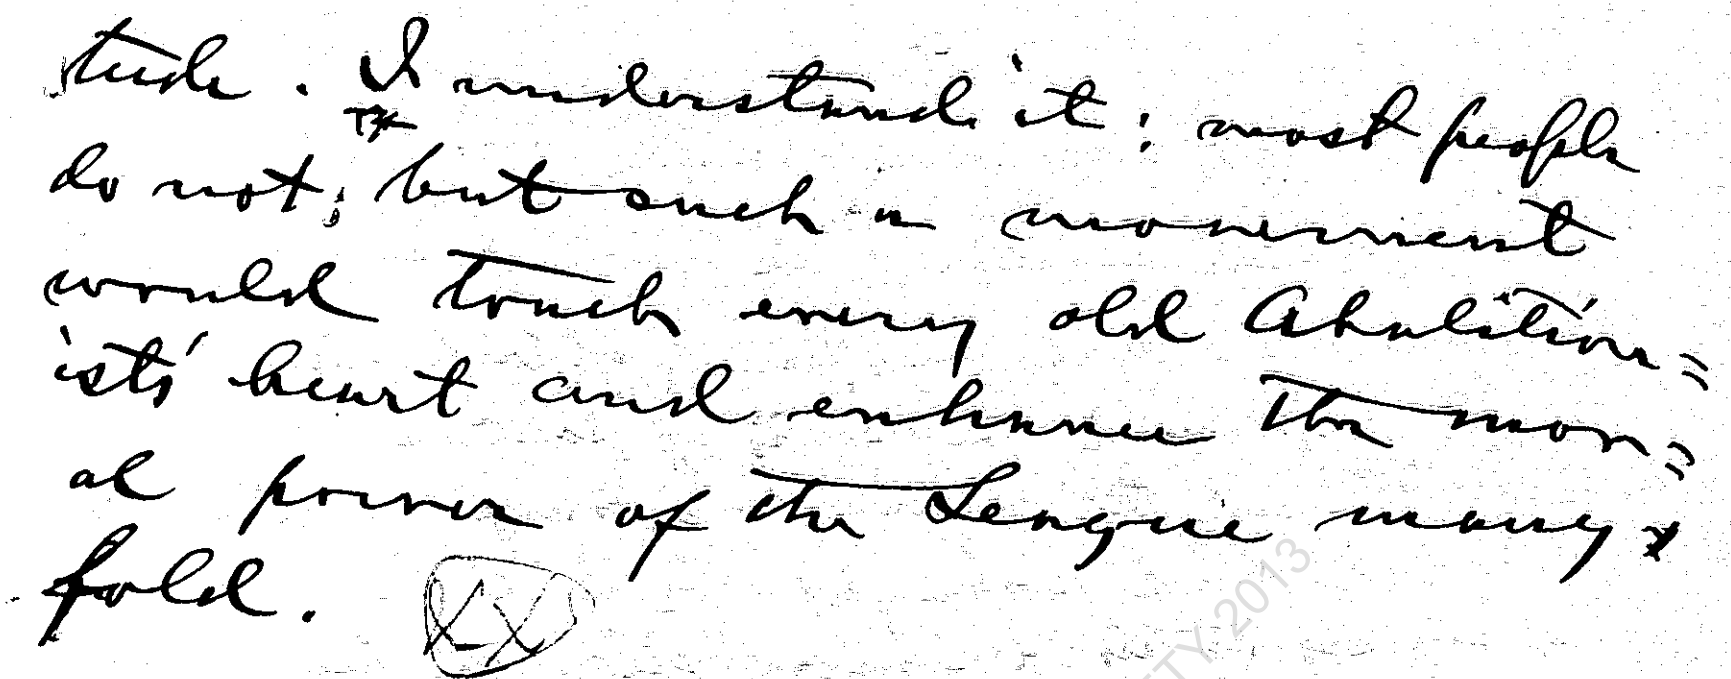 tude. I understand it; most people
do not; but such a movement
would touch every old Abolition=
ists' heart and enhance the mor=
al power of the League many
fold.
TY 2013